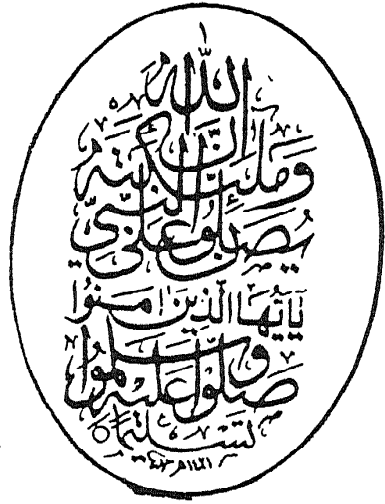 اِنَّ اللّٰهَ
وَمَلٰٓئِكَتَهٗ
يُصَلُّوْنَ عَلَى النَّبِيِّ
يٰٓاَيُّهَا الَّذِيْنَ اٰمَنُوْا
صَلُّوْا عَلَيْهِ وَسَلِّمُوْا
تَسْلِيْمًا